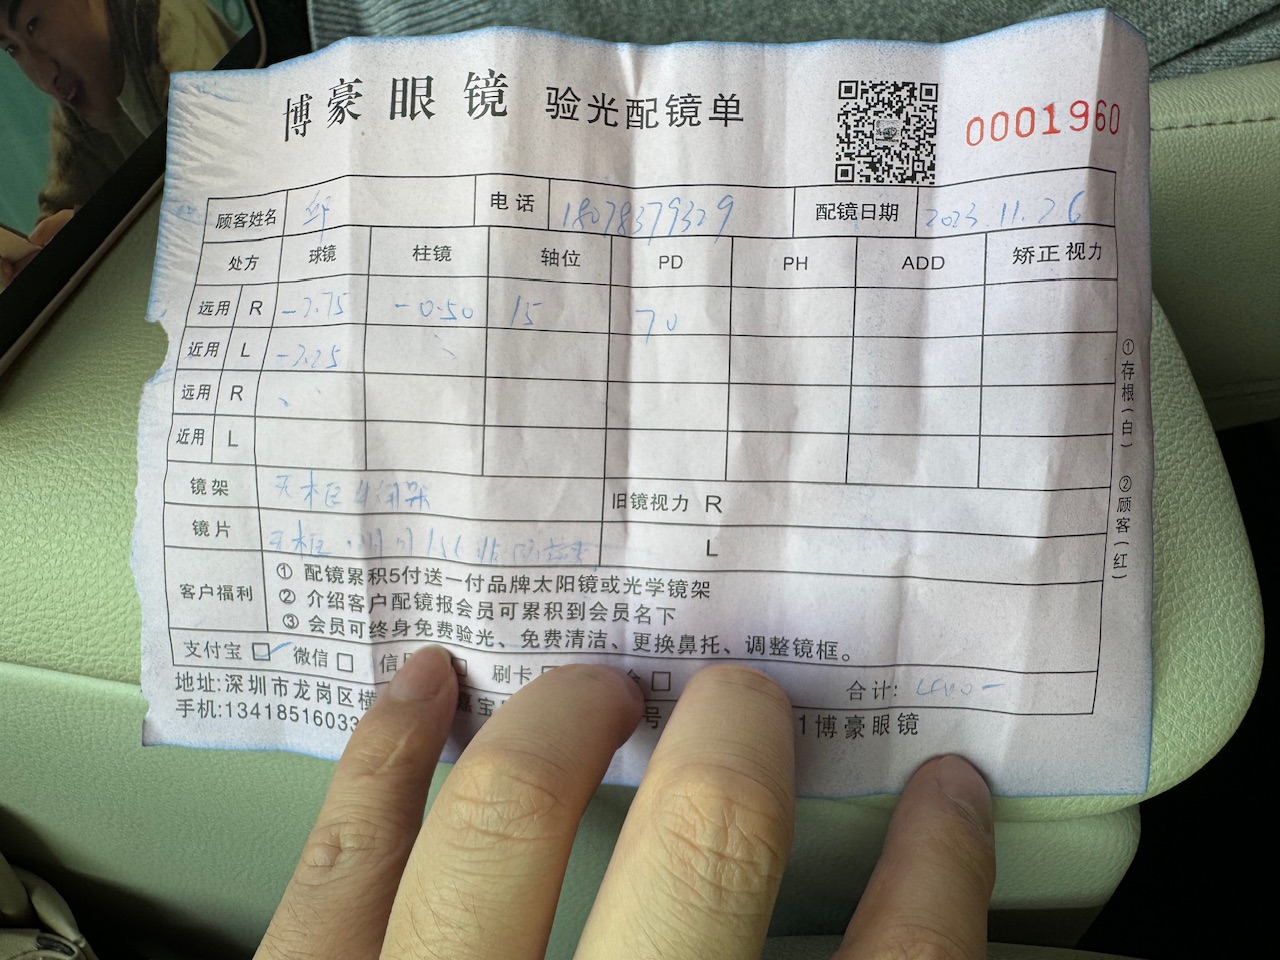 博豪眼镜 验光配镜单 0001960
顾客姓名 邱 电话 18078379329 配镜日期 2023 11.26
处方 球镜 柱镜 轴位 PD PH ADD 矫正视力
远用 R -2.75 -0.50 15 70
近用 L -2.25
远用 R
近用 L
镜架 旧镜视力 R
镜片 L
客户福利 ① 配镜累积5付送一付品牌太阳镜或光学镜架
② 介绍客户配镜报会员可累积到会员名下
③ 会员可终身免费验光、免费清洁、更换鼻托、调整镜框。
支付宝 微信 信 刷卡 合计:
地址:深圳市龙岗区横 嘉宝 号 1博豪眼镜
手机:1341851603
①存根(白) ②顾客(红)